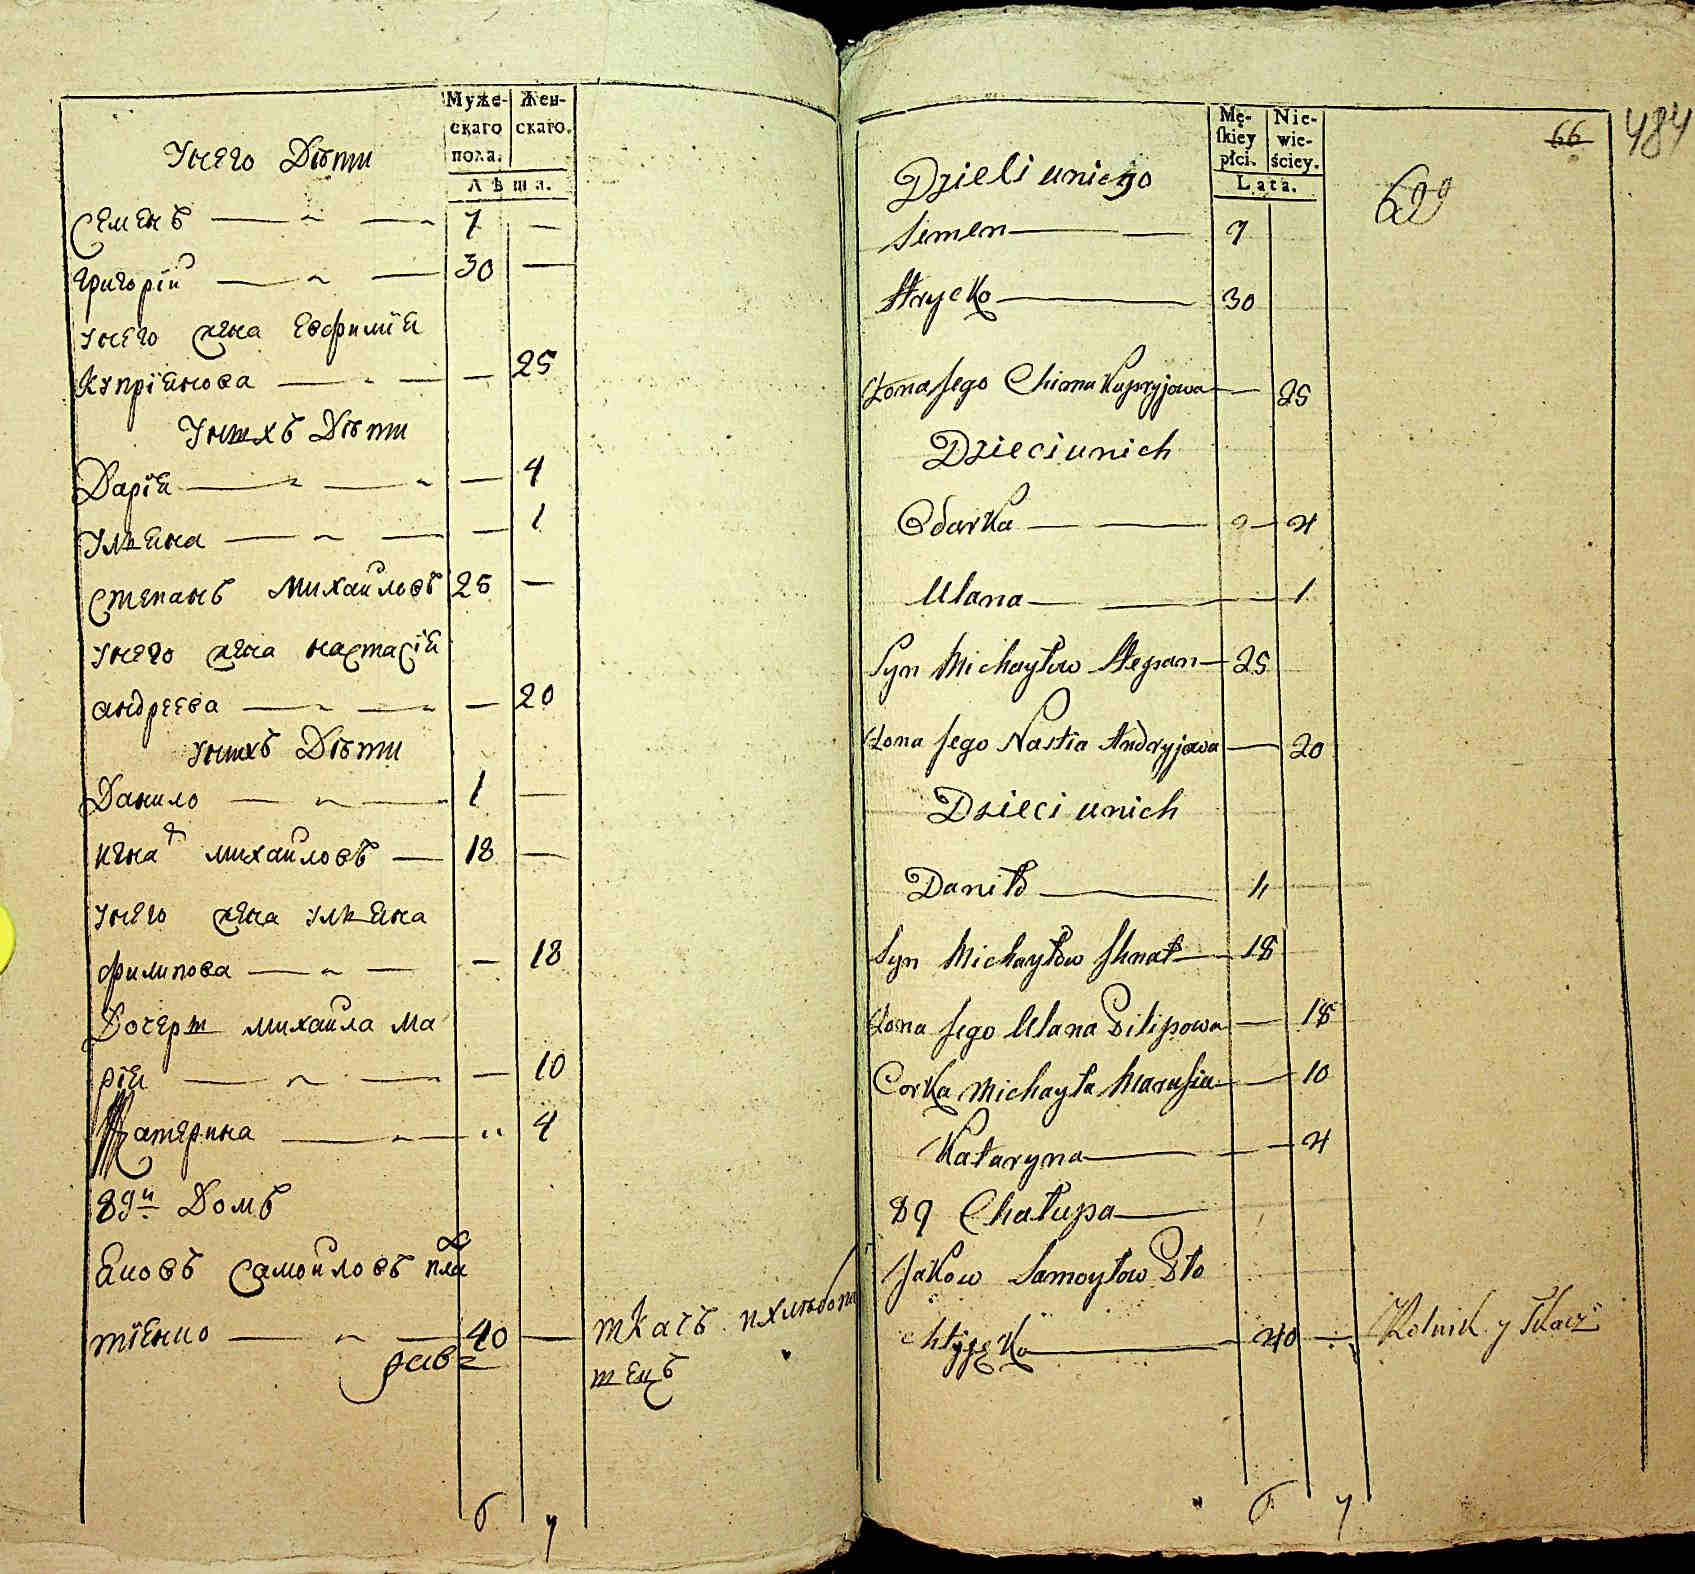 Муже-
скаго
пола.
Жен-
скаго.
Лѣта.
У него Дѣти
Семенъ 7 —
Григорїй 30 —
У него жена Евфимїя
Куприянова — 25
У нихъ Дѣти
Дарїя — 4
Ульяна — 1
Степанъ Михайловъ 25 —
У него жена Настасїя
Андреева — 20
У нихъ Дѣти
Данило 1 —
Игнат Михайловъ 18 —
У него жена Ульяна
Филипова — 18
Дочери Михайла Ма
рїя — 10
Катерина „ 4
89й Домъ
Яковъ Самойловъ Пла
тїенко 40 — ткачъ и хлѣбопа
шецъ
6 7
Mę-
skiey
płci.
Nie-
wie-
ściey.
Lata.
66
484
699
Dzieci uniego
Semen 7
Hrycko 30
Żona Jego Chima Kupryjowa — 25
Dzieci unich
Odarka — 4
Ulana — 1
Syn Michayłow Stepan 25
Żona Jego Nastia Andryjowa — 20
Dzieci unich
Daniło 1
Syn Michayłow Ihnat 18
Żona Jego Ulana Pilipowa — 18
Corka Michayła Marusia — 10
Kataryna — 4
89 Chałupa
Jakow Samoyłow
40 — Rolnik y Tkacz
6 7